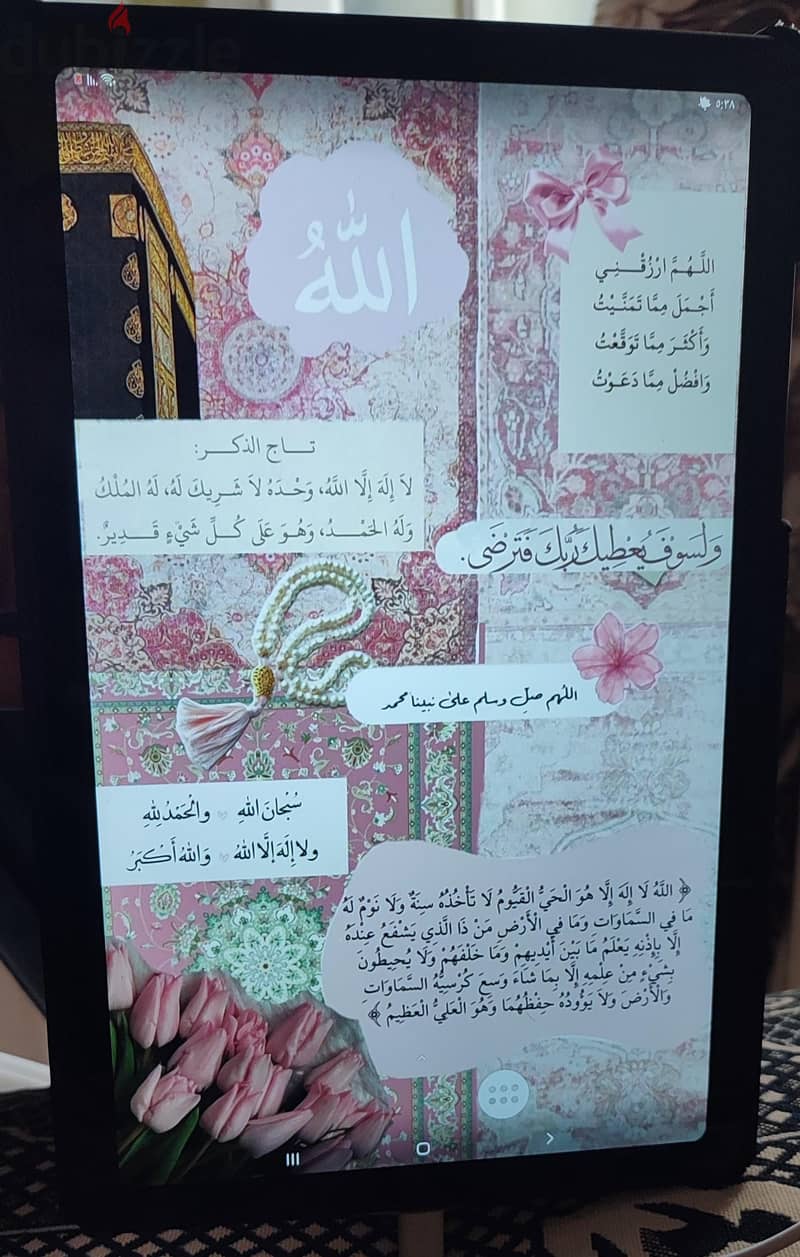 dubizzle
٥:٣٨
الله
اللَّـهُـمَّ ارْزُقْـنِـي
أَجْمَلَ مِمَّا تَمَنَّـيْتُ
وَأَكْثَـرَ مِمَّا تَوَقَّعْتُ
وَافْضُلْ مِمَّا دَعَـوْتُ
تـــاج الذكـــر:
لاَ إِلَهَ إِلَّا اللَّهُ، وَحْدَهُ لاَ شَرِيكَ لَهُ، لَهُ المُلْكُ
وَلَهُ الحَمْـــدُ، وَهُوَ عَلَى كُـــلِّ شَيْءٍ قَـــدِيرٌ.
وَلَسَوْفَ يُعْطِيكَ رَبُّكَ فَتَرْضَى.
اللهم صلِ وسلم على نبينا محمد
سُبْحَانَ اللهِ والْحَمْدُ لِلهِ
ولا إِلَهَ إلَّا اللهُ وَاللهُ أَكْبَرُ
﴿ اللَّهُ لَا إِلَهَ إِلَّا هُوَ الْحَيُّ الْقَيُّومُ لَا تَأْخُذُهُ سِنَةٌ وَلَا نَوْمٌ لَهُ
مَا فِي السَّمَاوَاتِ وَمَا فِي الْأَرْضِ مَنْ ذَا الَّذِي يَشْفَعُ عِنْدَهُ
إِلَّا بِإِذْنِهِ يَعْلَمُ مَا بَيْنَ أَيْدِيهِمْ وَمَا خَلْفَهُمْ وَلَا يُحِيطُونَ
بِشَيْءٍ مِنْ عِلْمِهِ إِلَّا بِمَا شَاءَ وَسِعَ كُرْسِيُّهُ السَّمَاوَاتِ
وَالْأَرْضَ وَلَا يَؤُودُهُ حِفْظُهُمَا وَهُوَ الْعَلِيُّ الْعَظِيمُ ﴾